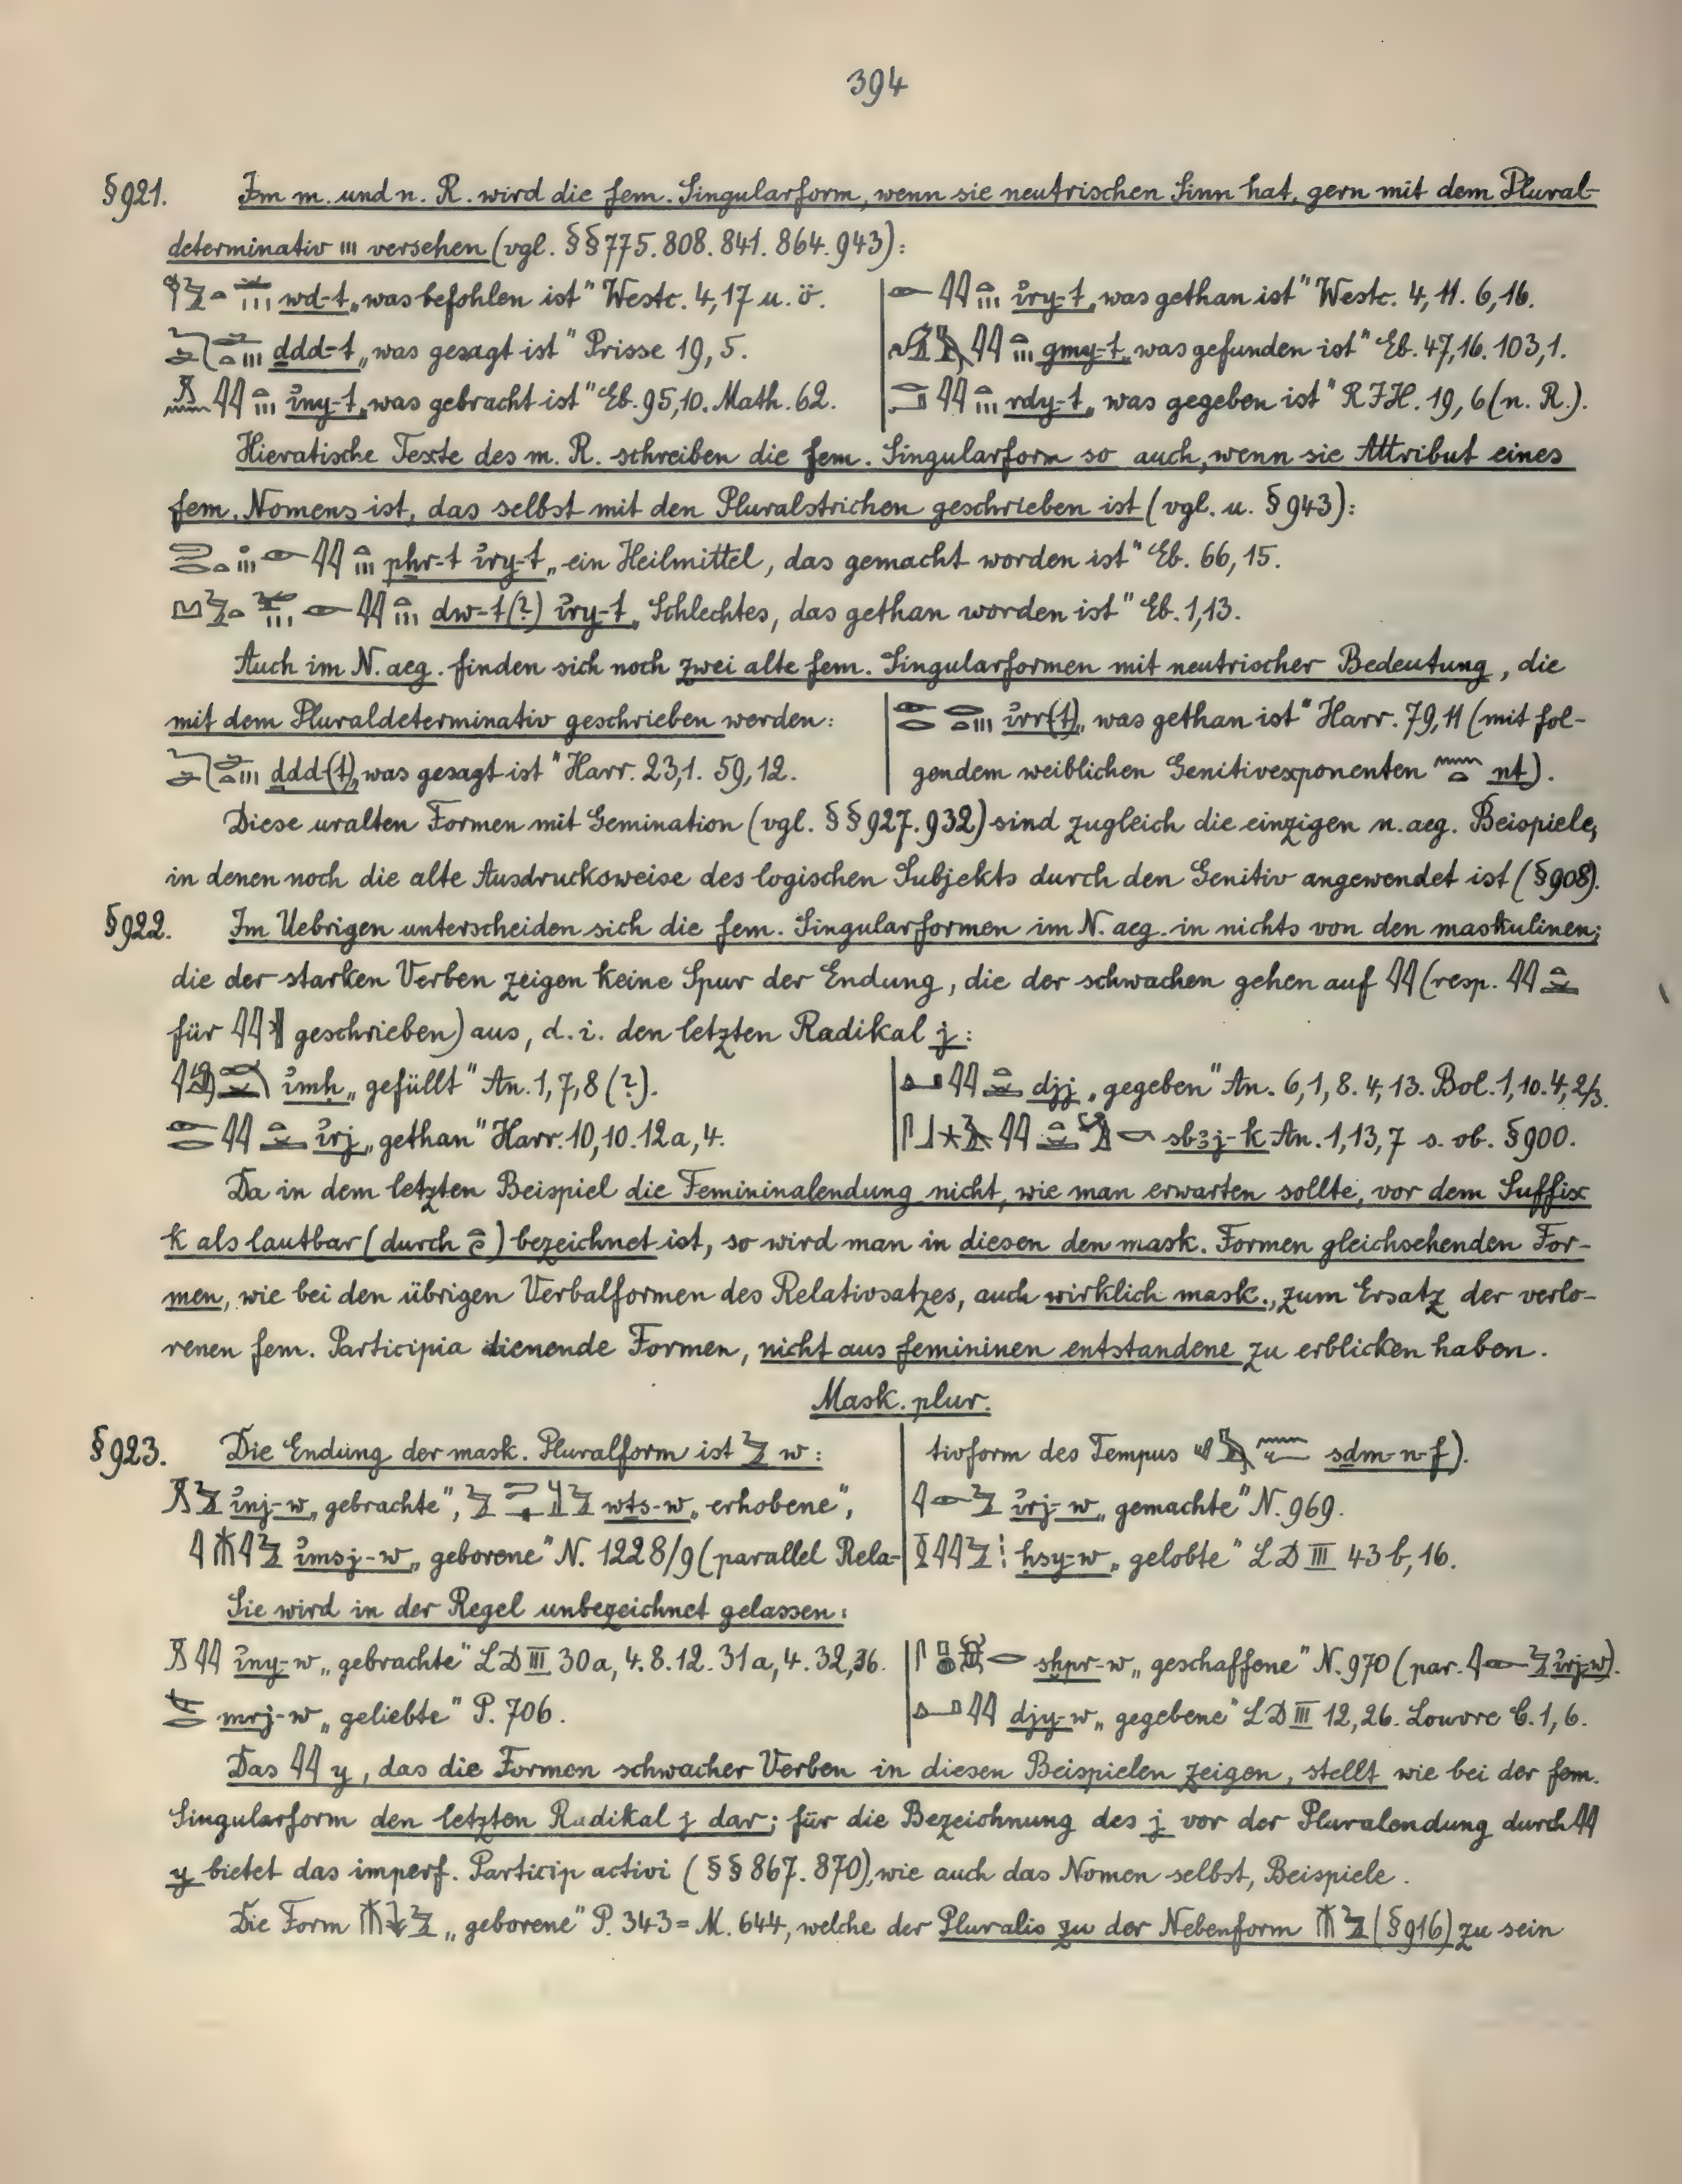 394
§921. Im m. und n. R. wird die fem. Singularform, wenn sie neutrischen Sinn hat, gern mit dem Plural-
determinativ ııı versehen (vgl. §§ 775. 808. 841. 864. 943):
wd-t „was befohlen ist" Westc. 4,17 u. ö.
ddd-t „was gesagt ist" Prisse 19,5.
iny-t „was gebracht ist" Eb. 95,10. Math. 62.
iry-t „was gethan ist" Westc. 4,11. 6,16.
gmy-t „was gefunden ist" Eb. 47,16. 103,1.
rdy-t „was gegeben ist" RIH. 19,6 (n. R.).
Hieratische Texte des m. R. schreiben die fem. Singularform so auch, wenn sie Attribut eines
fem. Nomens ist, das selbst mit den Pluralstrichen geschrieben ist (vgl. u. §943):
phr-t iry-t „ein Heilmittel, das gemacht worden ist" Eb. 66,15.
dw-t(?) iry-t „Schlechtes, das gethan worden ist" Eb. 1,13.
Auch im N. aeg. finden sich noch zwei alte fem. Singularformen mit neutrischer Bedeutung, die
mit dem Pluraldeterminativ geschrieben werden:
ddd-(t) „was gesagt ist" Harr. 23,1. 59,12.
irr(t) „was gethan ist" Harr. 79,11 (mit fol-
gendem weiblichen Genitivexponenten nt).
Diese uralten Formen mit Gemination (vgl. §§ 927. 932) sind zugleich die einzigen n. aeg. Beispiele,
in denen noch die alte Ausdrucksweise des logischen Subjekts durch den Genitiv angewendet ist (§908).
§922. Im Uebrigen unterscheiden sich die fem. Singularformen im N. aeg. in nichts von den maskulinen;
die der starken Verben zeigen keine Spur der Endung, die der schwachen gehen auf (resp.
für geschrieben) aus, d. i. den letzten Radikal j:
imḥ „gefüllt" An. 1,7,8 (?).
irj „gethan" Harr. 10,10. 12a,4.
djj „gegeben" An. 6,1,8. 4,13. Bol. 1,10. 4,2/3.
sbꜣj-k An. 1,13,7 s. ob. §900.
Da in dem letzten Beispiel die Femininalendung nicht, wie man erwarten sollte, vor dem Suffix
k als lautbar (durch ) bezeichnet ist, so wird man in diesen den mask. Formen gleichsehenden For-
men, wie bei den übrigen Verbalformen des Relativsatzes, auch wirklich mask., zum Ersatz der verlo-
renen fem. Participia dienende Formen, nicht aus femininen entstandene zu erblicken haben.
Mask. plur.
§923. Die Endung der mask. Pluralform ist w:
inj-w „gebrachte", wts-w „erhobene",
imsj-w „geborene" N. 1228/9 (parallel Rela-
tivform des Tempus sdm-n-f).
irj-w „gemachte" N. 969.
ḥsy-w „gelobte" LD III 43b,16.
Sie wird in der Regel unbezeichnet gelassen:
iny-w „gebrachte" LD III 30a,4. 8. 12. 31a,4. 32,36.
mrj-w „geliebte" P. 706.
sḫpr-w „geschaffene" N. 970 (par. irj-w).
djy-w „gegebene" LD III 12,26. Louvre C. 1,6.
Das y, das die Formen schwacher Verben in diesen Beispielen zeigen, stellt wie bei der fem.
Singularform den letzten Radikal j dar; für die Bezeichnung des j vor der Pluralendung durch
y bietet das imperf. Particip activi (§§ 867. 870), wie auch das Nomen selbst, Beispiele.
Die Form „geborene" P. 343 = M. 644, welche der Pluralis zu der Nebenform (§916) zu sein